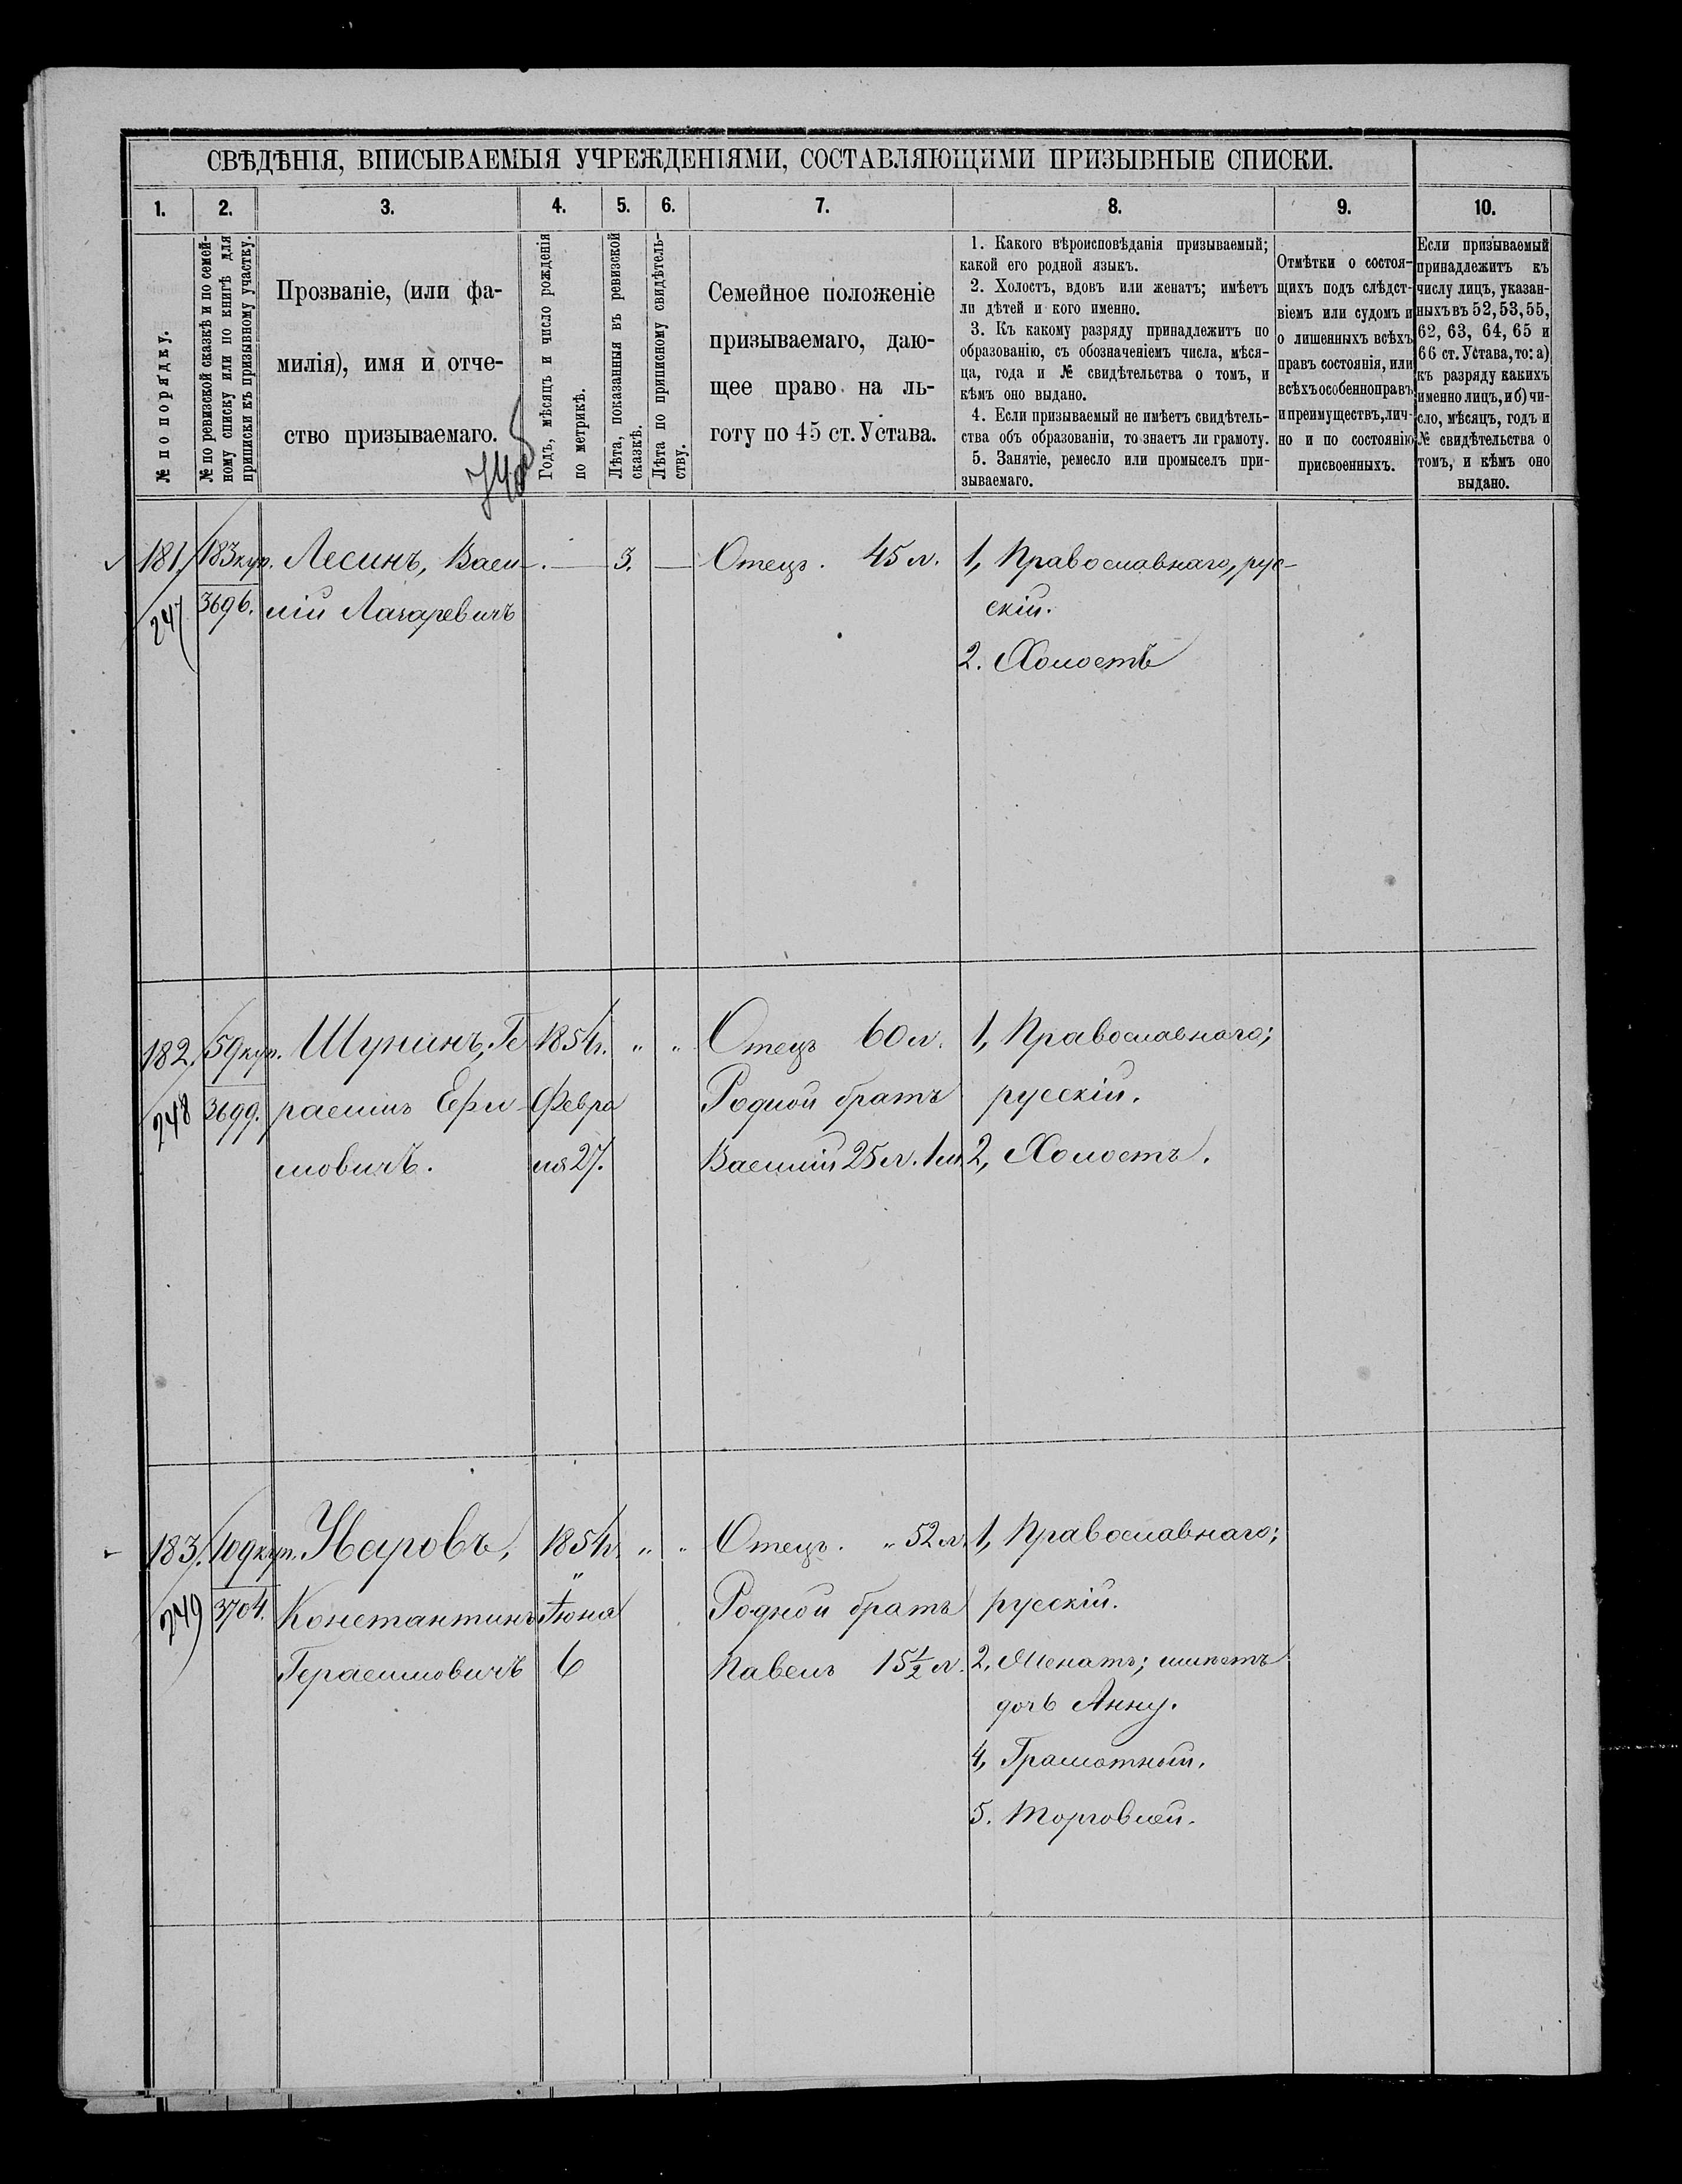 СВѢДѢНІЯ, ВПИСЫВАЕМЫЯ УЧРЕЖДЕНІЯМИ, СОСТАВЛЯЮЩИМИ ПРИЗЫВНЫЕ СПИСКИ.
1. 2. 3. 4. 5. 6. 7. 8. 9. 10.
№ по порядку.
№ по ревизской сказкѣ и по семей-
ному списку или по книгѣ для
приписки къ призывному участку.
Прозваніе, (или фа-
милія), имя и отче-
ство призываемаго.
Годъ, мѣсяцъ и число рожденія
по метрикѣ.
Лѣта, показанныя въ ревизской
сказкѣ.
Лѣта по приписному свидѣтель-
ству.
Семейное положеніе
призываемаго, даю-
щее право на ль-
готу по 45 ст. Устава.
1. Какого вѣроисповѣданія призываемый;
какой его родной языкъ.
2. Холостъ, вдовъ или женатъ; имѣетъ
ли дѣтей и кого именно.
3. Къ какому разряду принадлежитъ по
образованію, съ обозначеніемъ числа, мѣся-
ца, года и № свидѣтельства о томъ, и
кѣмъ оно выдано.
4. Если призываемый не имѣетъ свидѣтель-
ства объ образованіи, то знаетъ ли грамоту.
5. Занятіе, ремесло или промыселъ при-
зываемаго.
Отмѣтки о состоя-
щихъ подъ слѣдст-
віемъ или судомъ и
о лишенныхъ всѣхъ
правъ состоянія, или
всѣхъ особенно правъ
и преимуществъ, лич-
но и по состоянію
присвоенныхъ.
Если призываемый
принадлежитъ къ
числу лицъ, указан-
ныхъ въ 52, 53, 55,
62, 63, 64, 65 и
66 ст. Устава, то: а)
къ разряду какихъ
именно лицъ, и б) чи-
сло, мѣсяцъ, годъ и
№ свидѣтельства о
томъ, и кѣмъ оно
выдано.
181. 183 куп. Лесинъ, Васи- — 3. — Отецъ. 45 л. 1, Православнаго, рус-
247 3696. лій Лазаревичъ скій.
2. Холостъ
182. 59 куп. Шунинъ, Ге 1854 г. " " Отецъ 60 л. 1, Православнаго;
248 3699. расимъ Ефи- Февра Родной братъ русскій.
мовичъ. ля 27. Василий 25 л. 1 м. 2, Холостъ.
183. 109 куп. Уваровъ, 1854 г. " " Отецъ. " 52 л. 1, Православнаго;
249 3704. Константинъ Іюня Родной братъ русскій.
Герасимовичъ 6 Павелъ 15 1/2 л. 2, Женатъ; имѣетъ
дочь Анну.
4, Грамотный.
5. Торговлей.